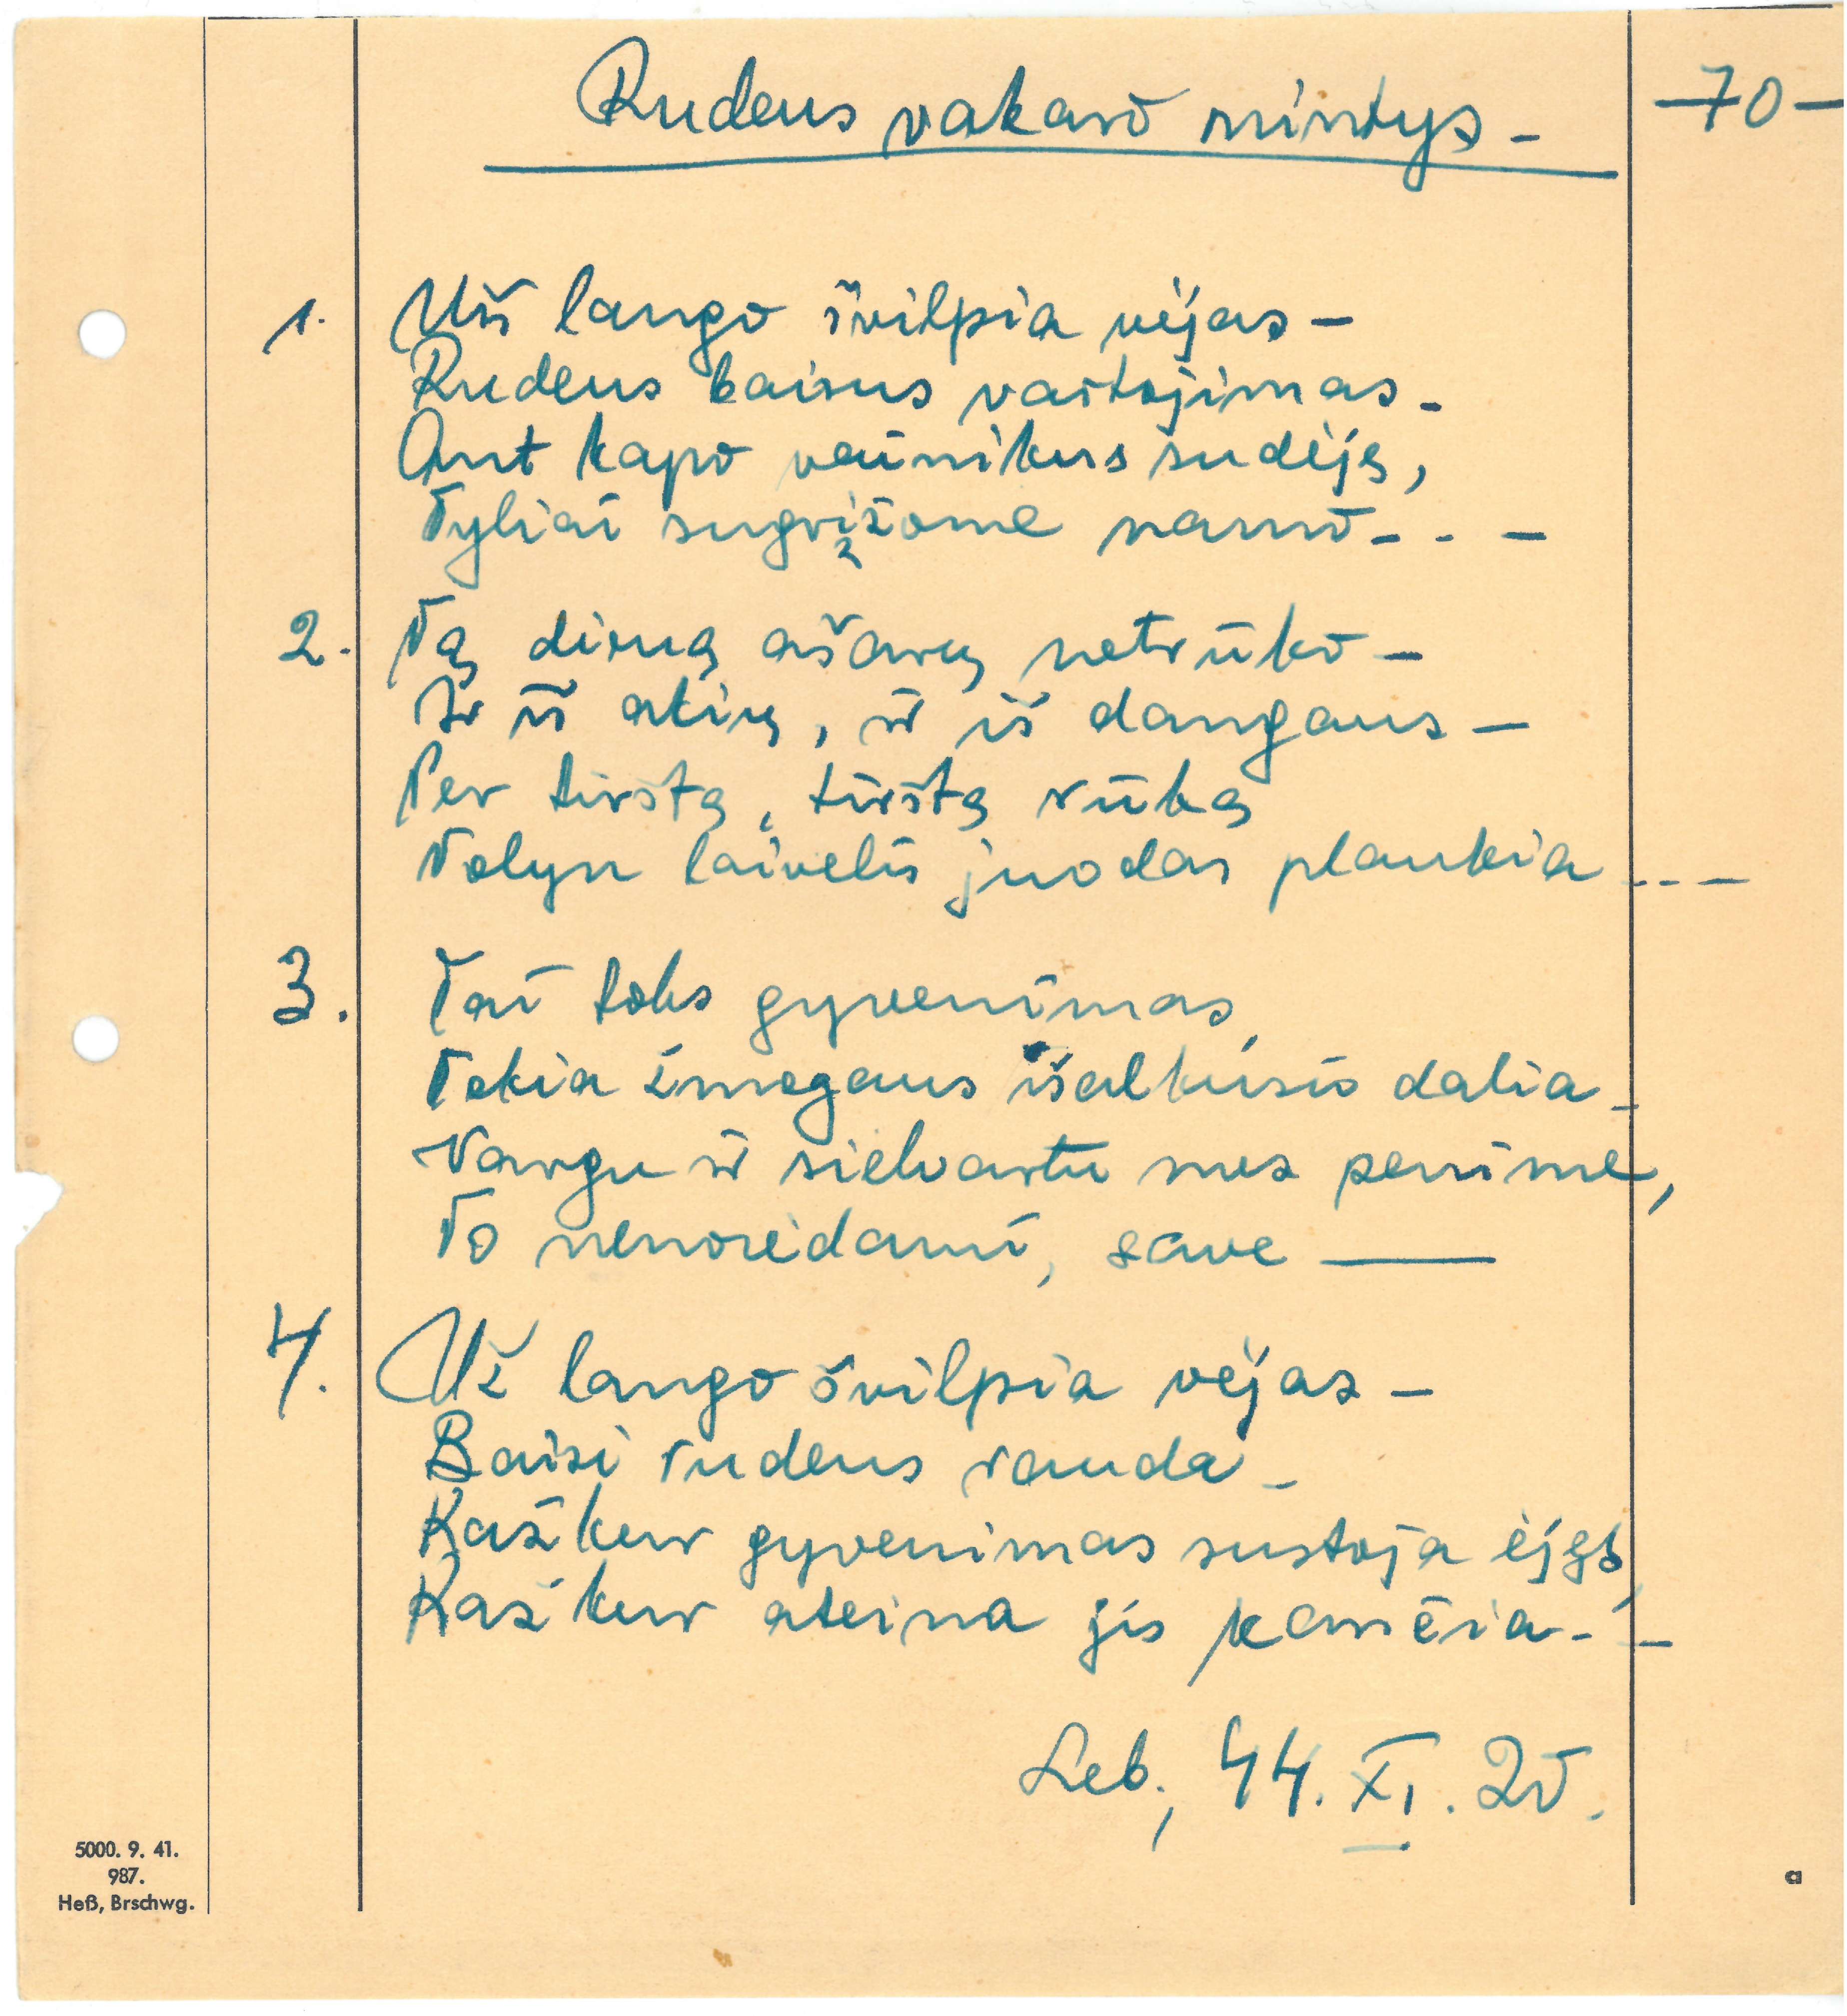 Rudens vakaro mintys –
– 70 –
1. Uš lango švilpia vėjas –
Rudens baisus vaitojimas –
Ant kapo vainikus sudėję,
Tyliai sugrįžome namo – – –
2. Tą dieną ašarų netrūko –
Ir iš akių, ir iš dangaus –
Per tirštą, tirštą rūką
Tolyn laivelis juodas plaukia – – –
3. Tai toks gyvenimas,
Tokia žmogaus išalkusio dalia –
Vargu ir sielvartu mes penime,
To nenorėdami, save ———
4. Už lango švilpia vėjas –
Baisi rudens rauda –
Kažkur gyvenimas sustoja ėjęs,
Kažkur ateina jis kančia – –
Leb., 44. XI. 20.
5000. 9. 41.
987.
Heß, Brschwg.
a